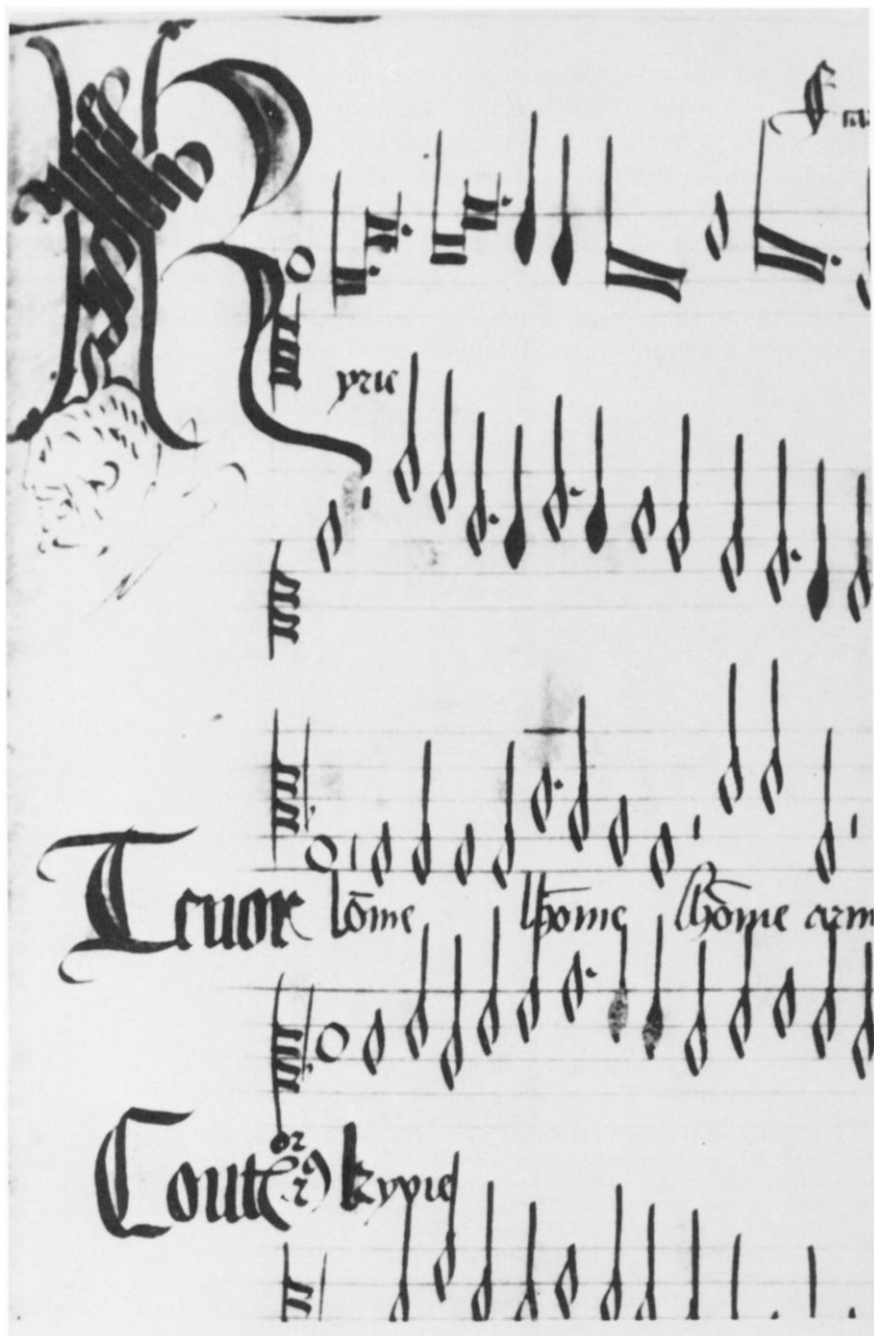 K
yrie
Tenor lōme lhōme lhōme arm
Contra kyrie